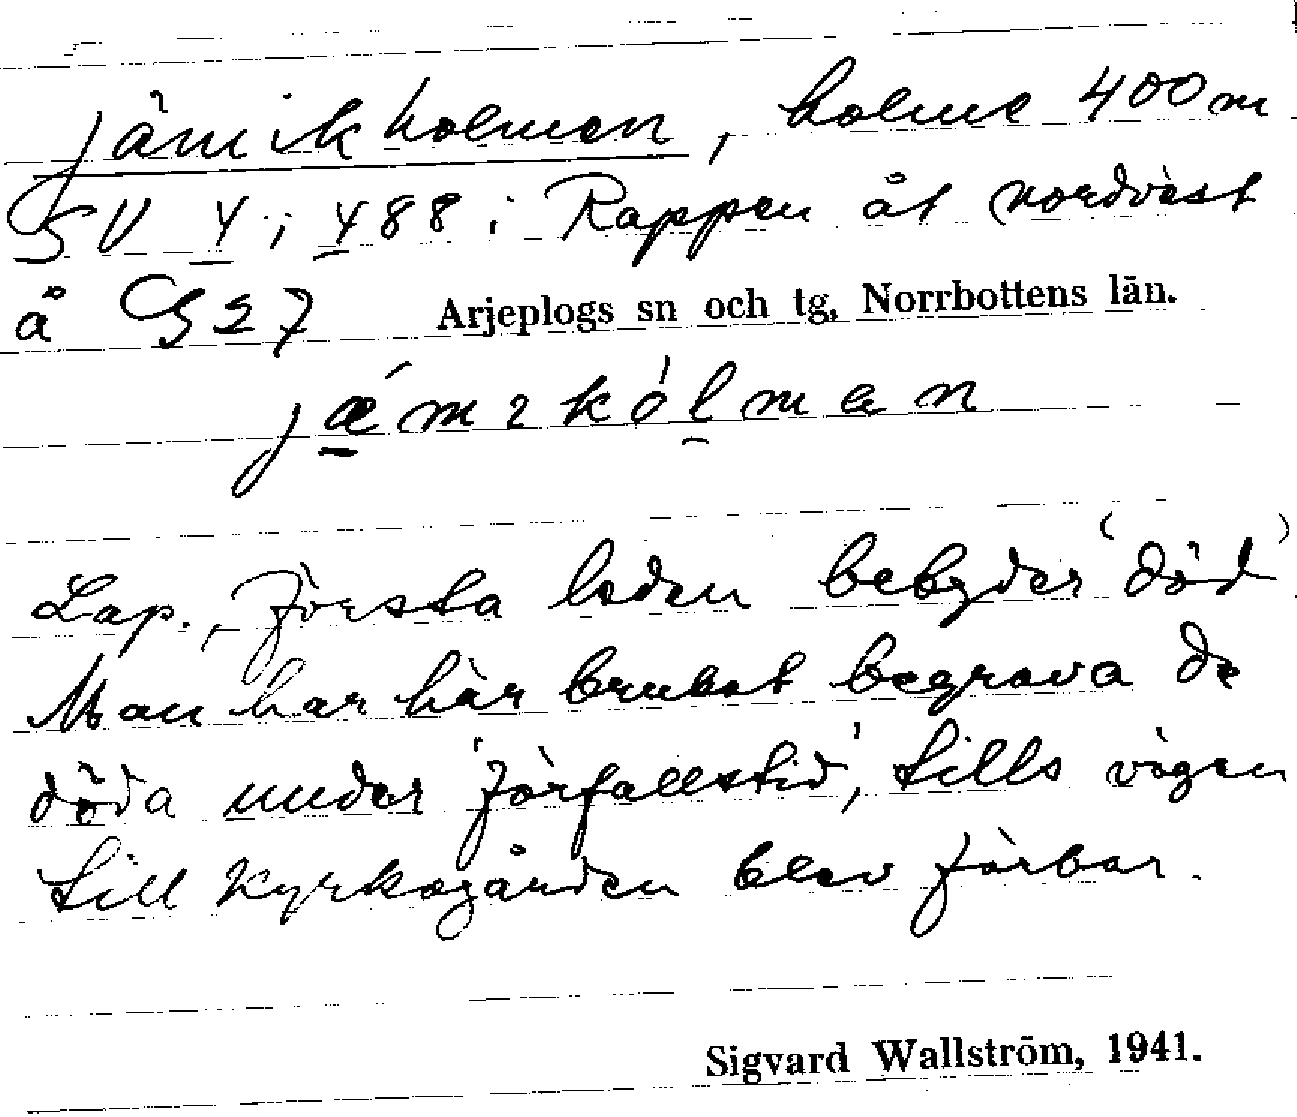 Jämikholmen, holme 400 m
SV Y; Y88 i Rappen åt nordväst
å G27 Arjeplogs sn och tg, Norrbottens län.
jǽmɩkólman
Lap., Första leden betyder 'död'
Man har här brukat begrava de
döda under 'förfallstid', tills vägen
till kyrkogården blev förbar.
Sigvard Wallström, 1941.